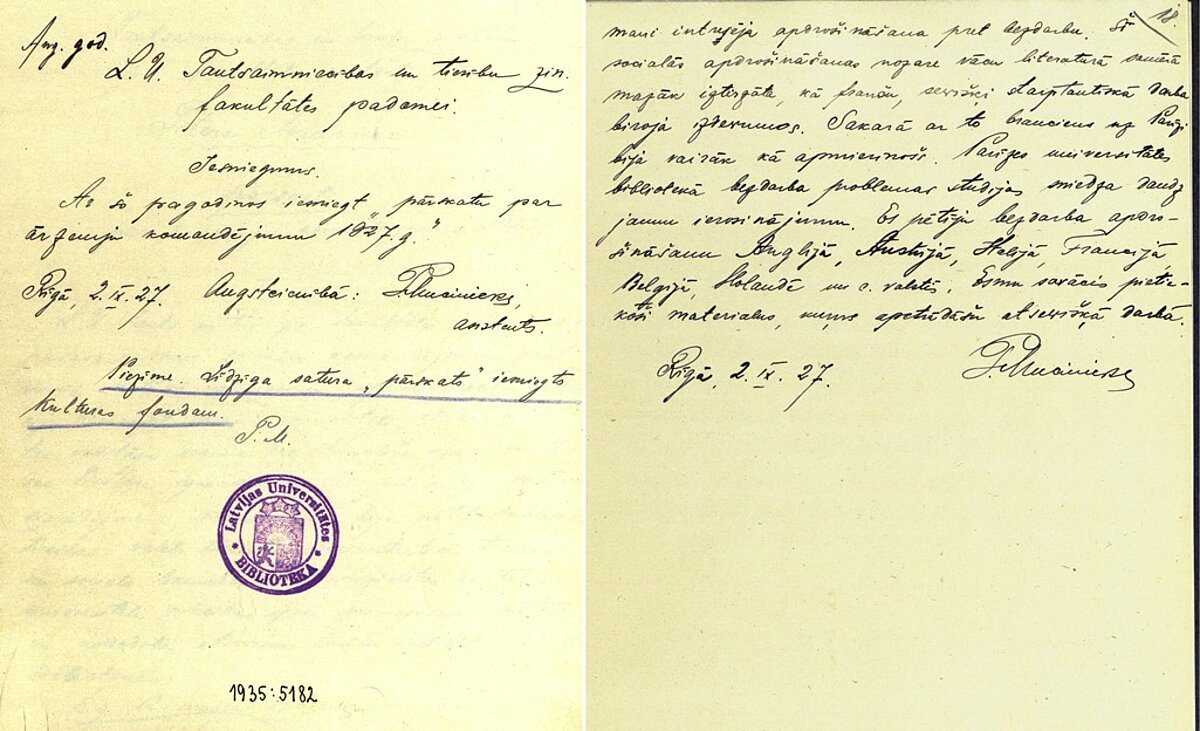 Aug. god.
L. U. Tautsaimniecības un tiesību zin.
fakultātes padomei.
Iesniegums.
Ar šo pagodinos iesniegt "pārskatu par
ārzemju komandējumu 1927. g."
Rīgā, 2. IX. 27. Augstcienībā: P. Mucinieks,
asistents.
Piezīme. Līdzīga satura „pārskats" iesniegts
Kultūras fondam.
P. M.
Latvijas Universitātes
BIBLIOTEKA
1935:5182
18.
mani intresēja apdrošināšana pret bezdarbu. Šī
sociālās apdrošināšanas nozare vācu literaturā samērā
mazāk iztirzāta, kā franču, sevišķi Starptautiskā darba
biroja izdevumos. Sakarā ar to brauciens uz Parīzi
bija vairāk kā apmierinošs. Parīzes universitātes
bibliotekā bezdarba problemas studijas sniedza daudz
jaunu ierosinājumu. Es pētīju bezdarba apdro-
šināšanu Anglijā, Austrijā, Italijā, Francijā,
Belgijā, Holandē un c. valstīs. Esmu savācis pietie-
koši materialus, kurus apstrādāšu atsevišķā darbā.
Rīgā, 2. IX. 27. P. Mucinieks